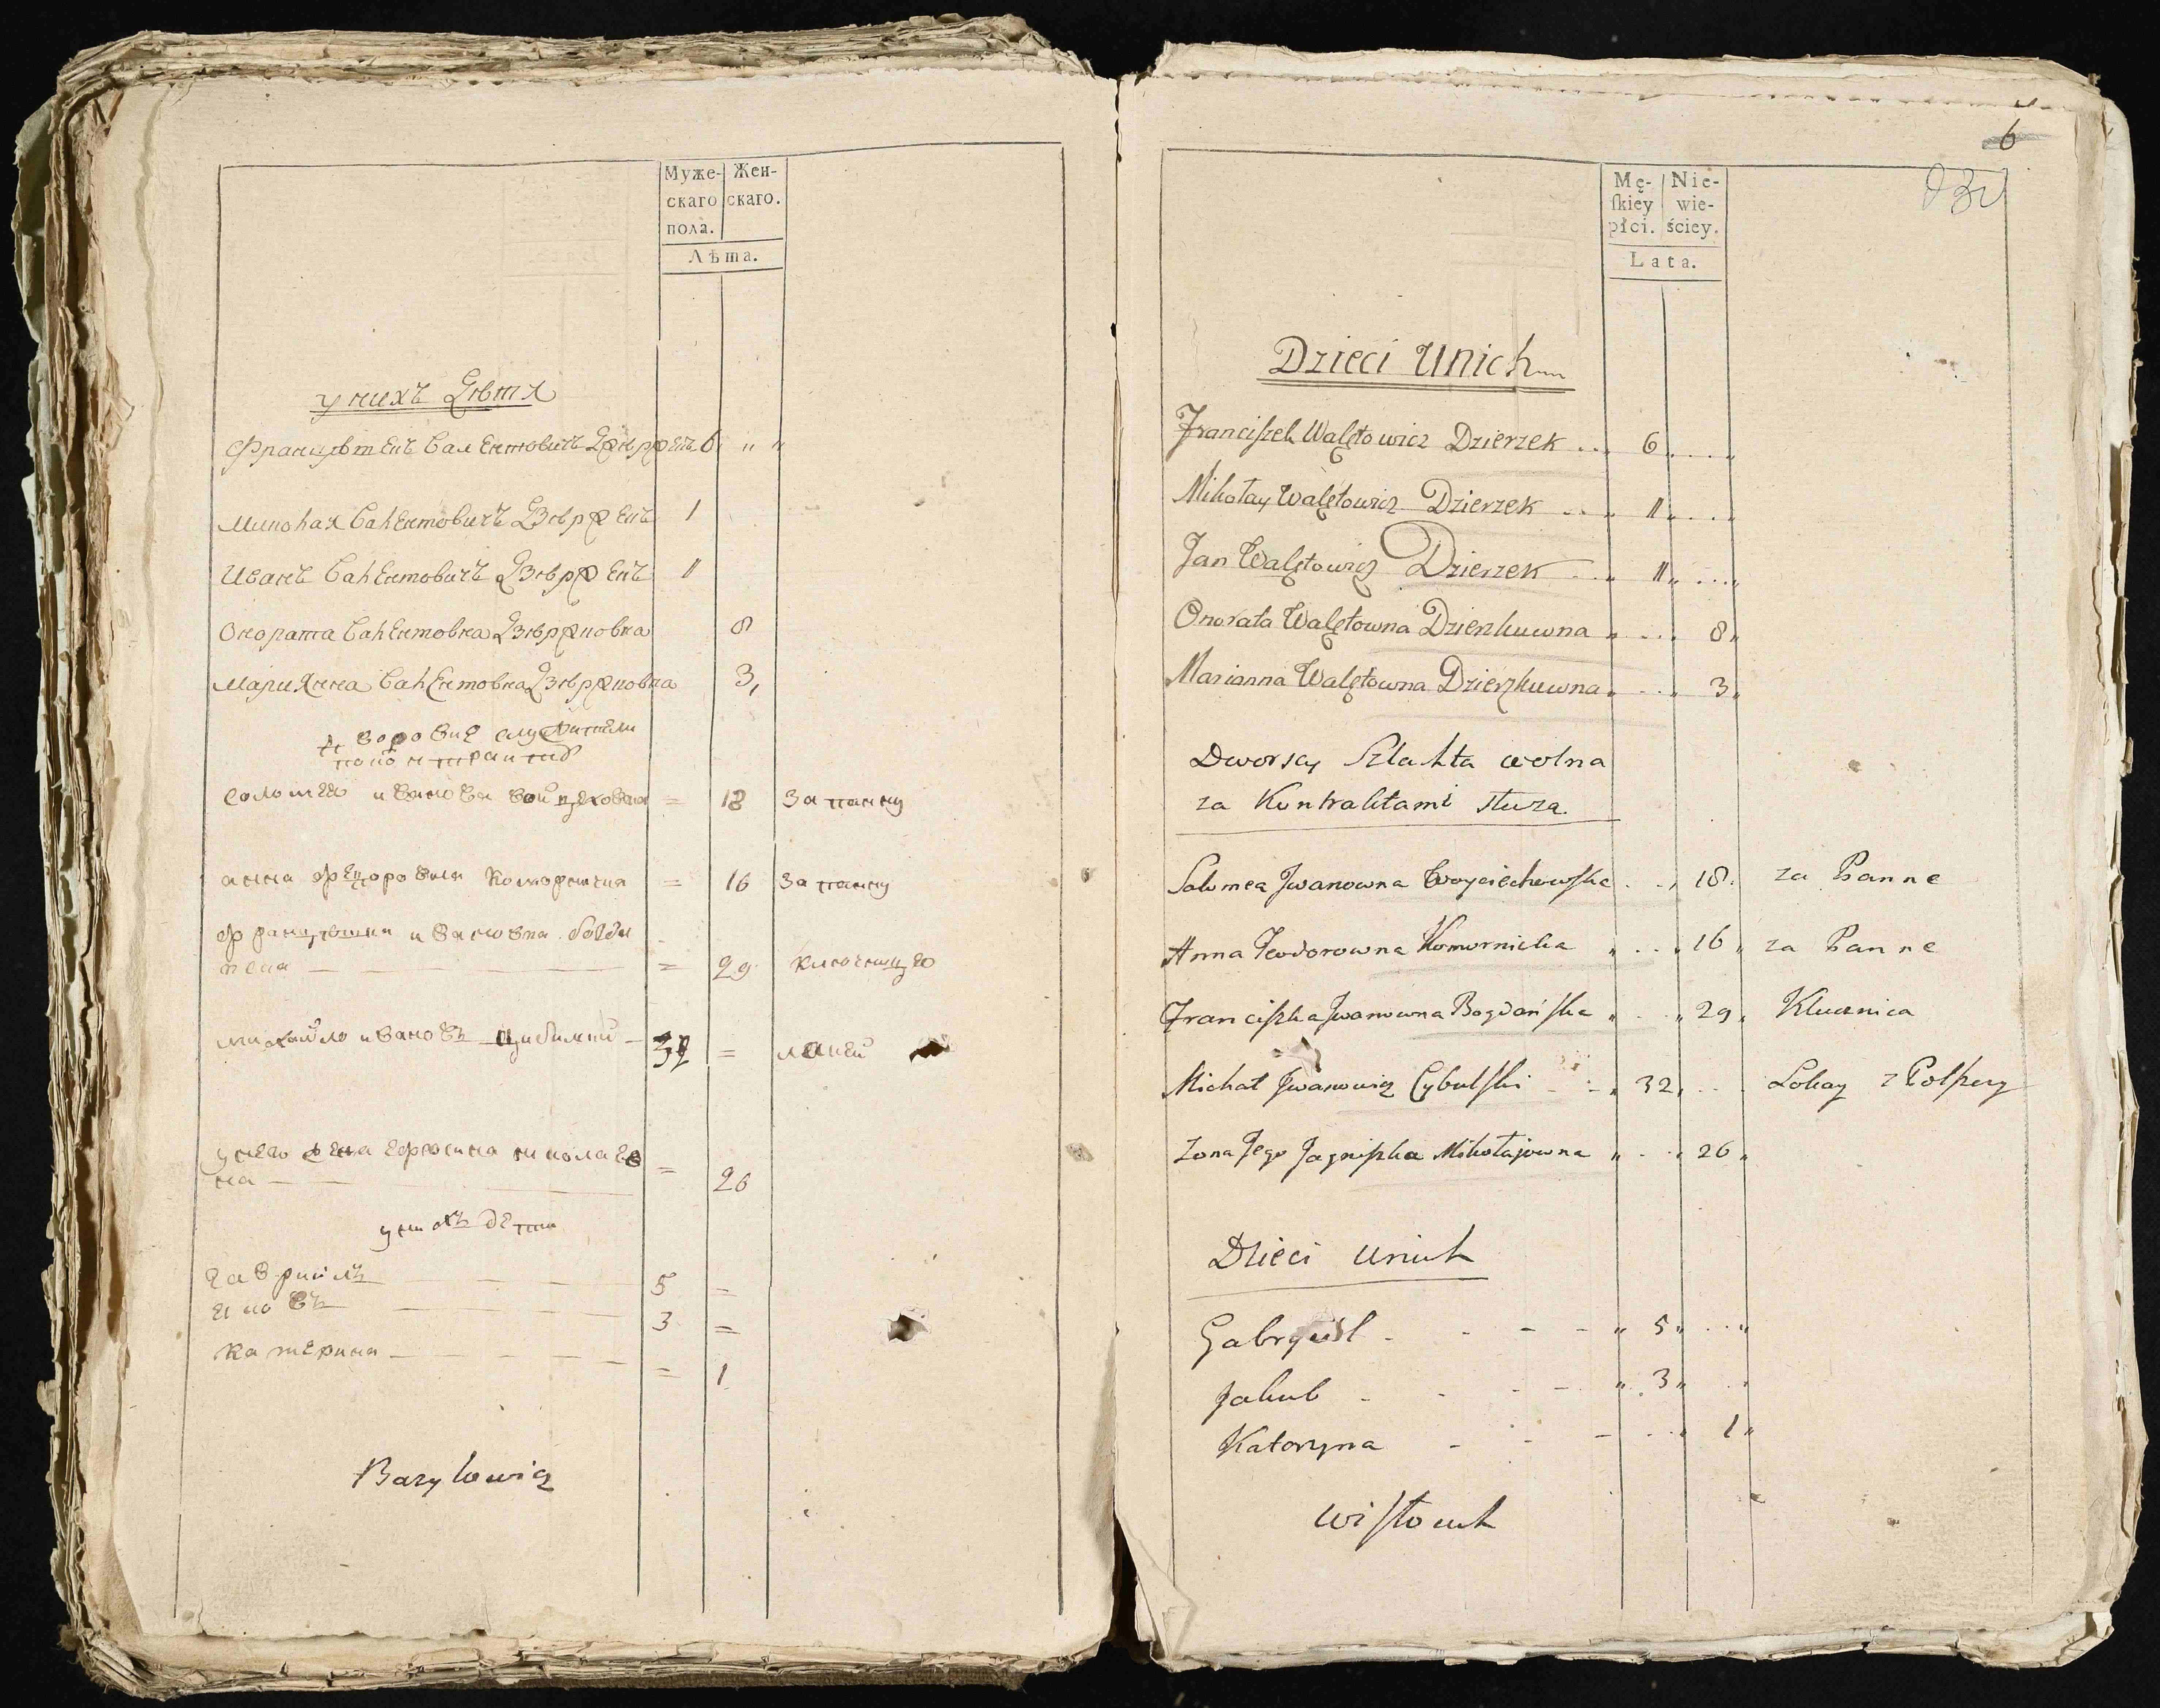 Муже-
скаго
пола.
Жен-
скаго.
Лѣта.
у нихъ Дѣтя
Францѣшекъ Валентовичъ Дзѣржекъ 6 " "
Миколай Валентовичъ Дзѣржекъ 1
Иванъ Валентовичъ Дзѣржекъ 11
Онората Валентовна Дзѣржковна 8
Марианна Валентовна Дзѣржковна 3,
дворовие служители
по контрактид
Соломея иванова войцеховна = 18 За панну
анна федоровна коморницка = 16 За панну
францѣшка ивановна богда
нска — = 29 ключницею
михайло ивановъ цибулский — 32 = локей
у него жена ефросина николаев
на — = 26
у нихъ дети
гавриилъ — 5 =
яковъ — 3 =
катерина — = 1
Bazylowicz
6
Mę-
ſkiey
płci.
Nie-
wie-
ściey.
Lata.
Dzieci Unich
Franciſzek Walętowicz Dzierzek ... 6 " ... "
Mikołay Walętowicz Dzierzek ... " 11 " ... "
Jan Walętowicz Dzierzek ... " 11 " ... "
Onorata Walętowna Dzierzkuwna " ... 8 "
Marianna Walętowna Dzierzkuwna " ... " 3 "
Dworscy Szlahta wolna
za Kontraktami służa
Salomea Jwanowna Woyciechowſka . . , 18. za Panne
Anna Teodorowna Komornicka " . . . 16 " za Panne
Franciſzka Jwanowna Bogdańſka " . . " 29 " Klucznica
Michał Jwanowicz Cybulſki - - " 32 " . . Lokay
Zona Jego Jagniſzka Mikołajowna " . . " 26 "
Dzieci unich
Gabryiel - - - - " 5 " . . "
Jakub - - - - " 3 " . "
Kataryna - - - . . " 1 "
wiſtouch